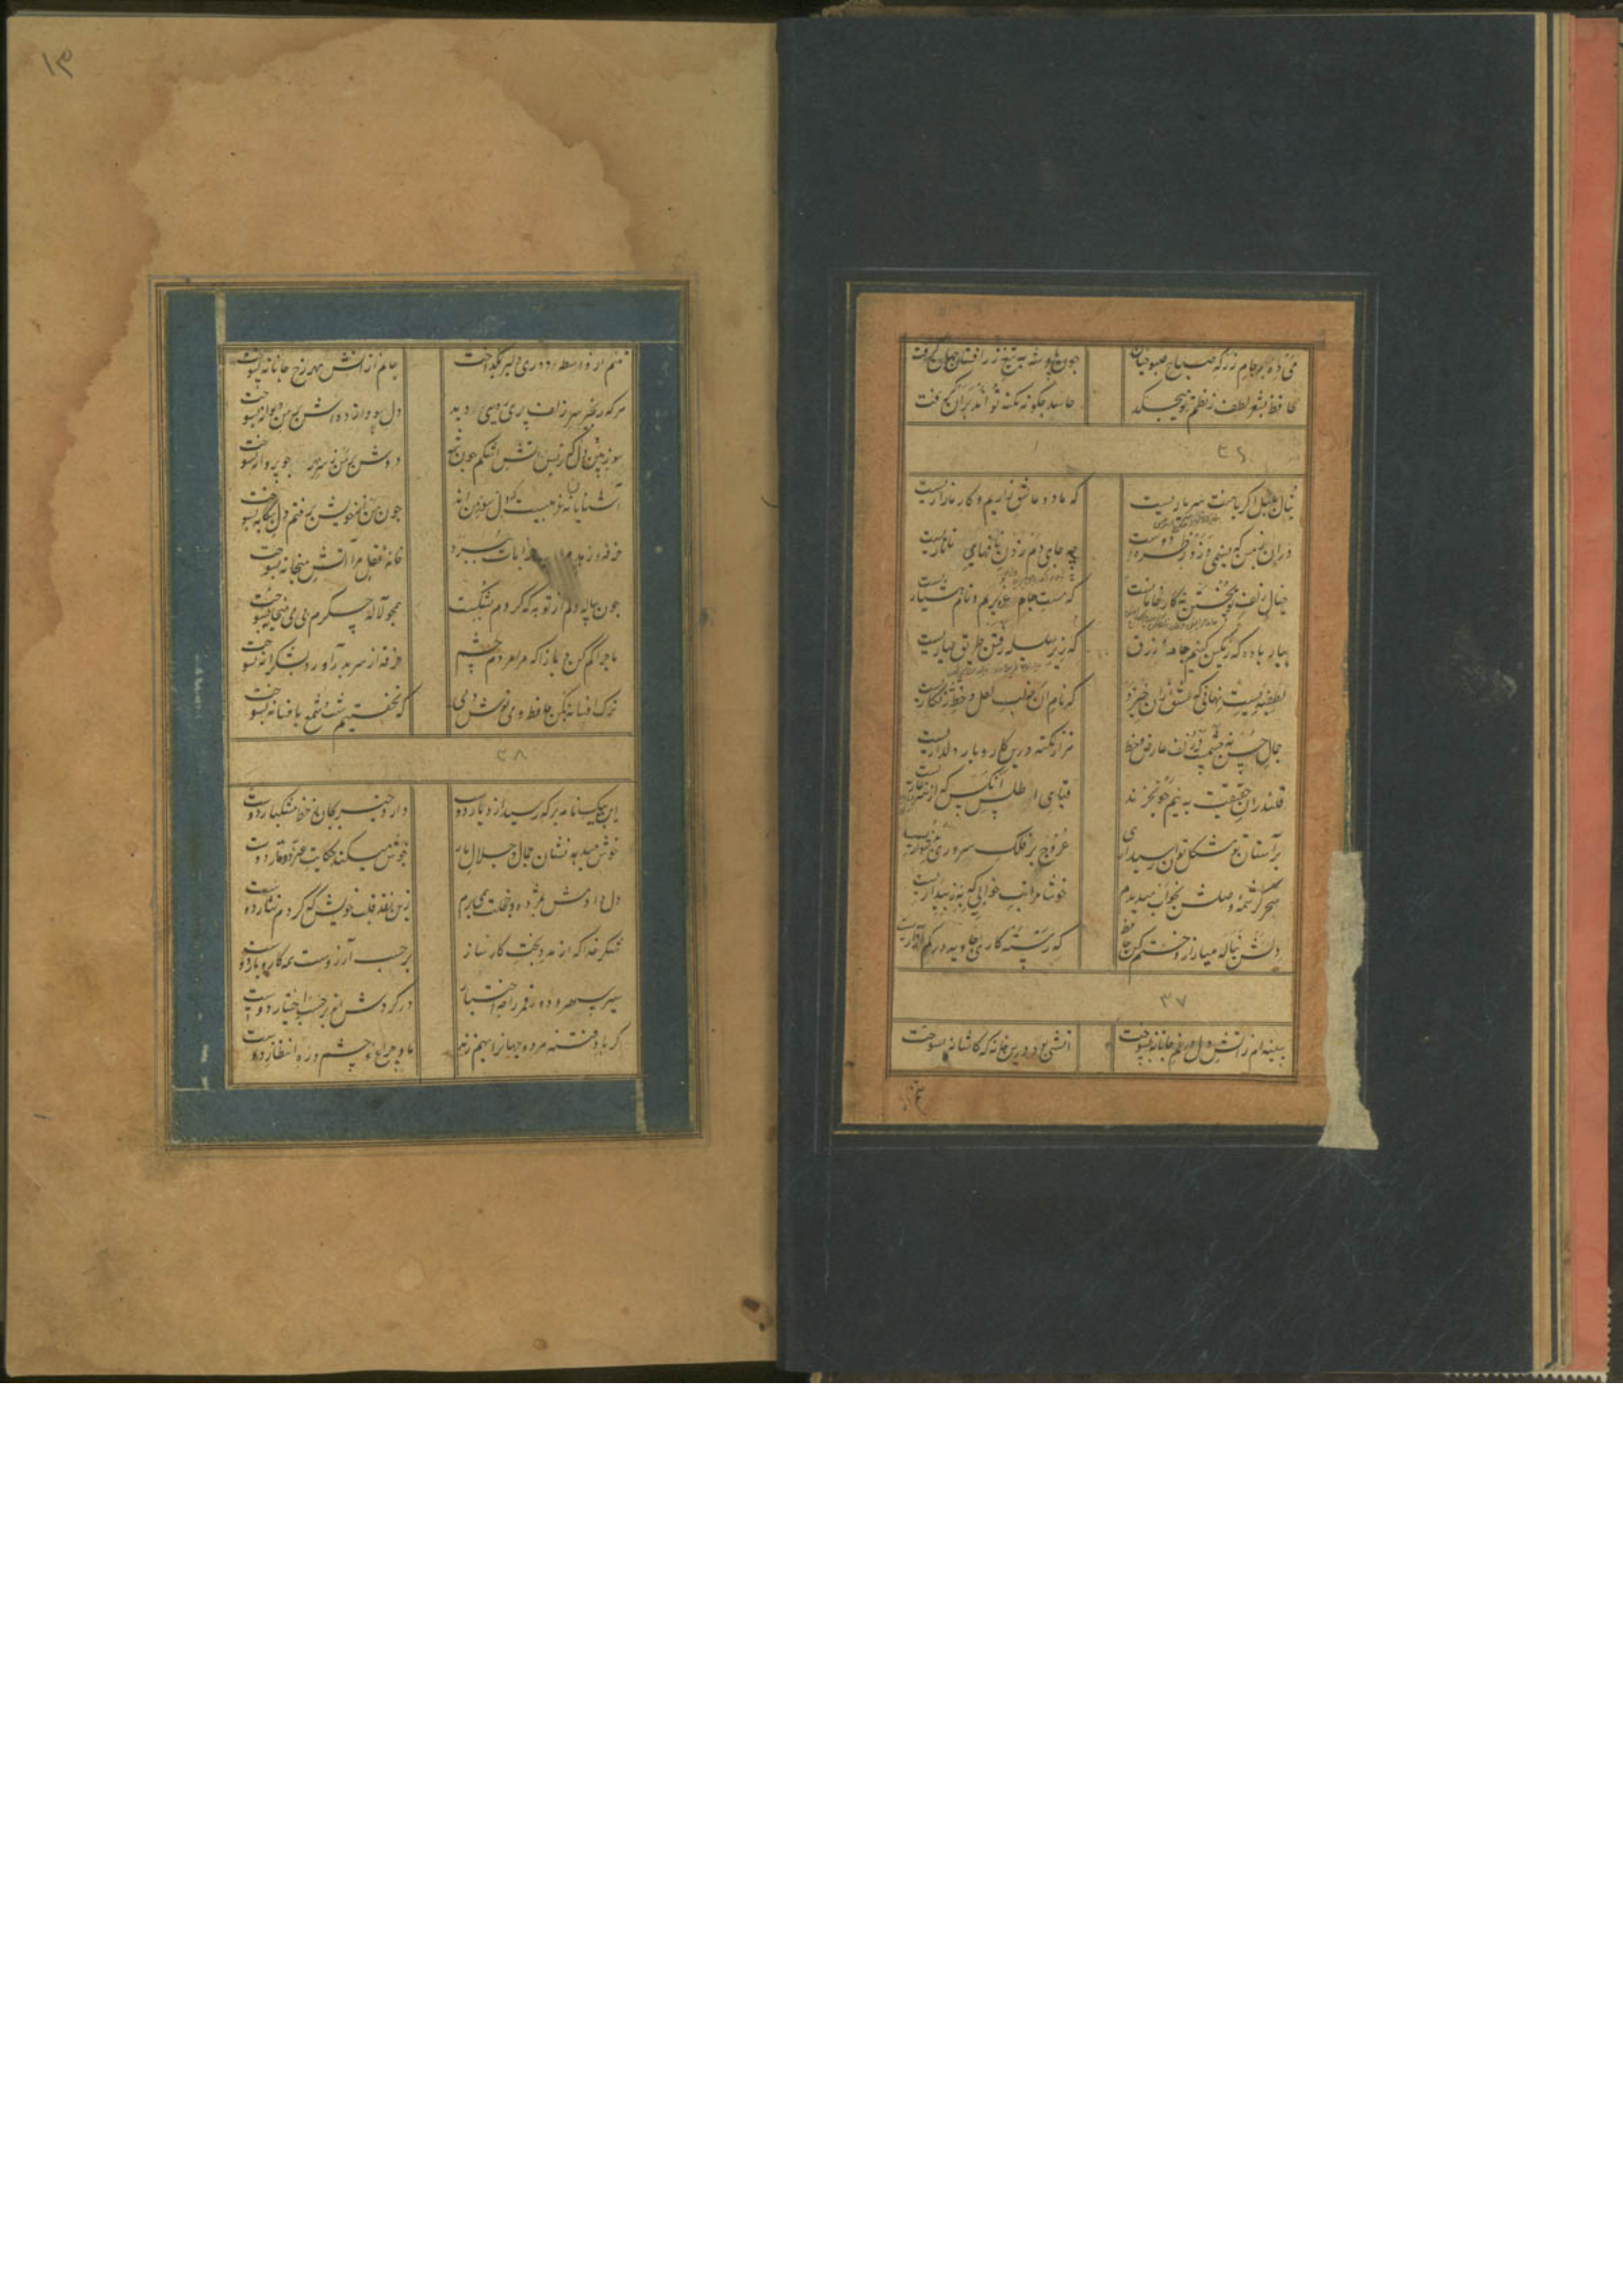 می ده که هر صبوحیان
چون پادشه به تیغ زرافشان جهان گرفت
حافظ چو آب لطف ز نظم تو میچکد
حاسد چگونه نکته تواند بران گرفت
۳۶
بنال بلبل اگر با منت سر یاریست
که ما دو عاشق زاریم و کار ما زاریست
دران زمین که نسیمی وزد ز طره دوست
چه جای دم زدن نافهای تاتاریست
خیال زلف تو پختن نه کار خامانست
که مست جام غروریم و نام هشیاریست
بیار باده که رنگین کنیم جامه زرق
که زیر سلسله رفتن طریق عیاریست
لطیفه ایست نهانی که عشق ازان خیزد
که نام آن نه لب لعل و خط زنگاریست
جمال حسن نه چشمست و زلف و عارض و خط
هزار نکته درین کار و بار دلداریست
قلندران حقیقت به نیم جو نخرند
قبای اطلس آنکس که از هنر عاریست
بر آستان تو مشکل توان رسید آری
عروج بر فلک سروری به دشواریست
سحر کرشمه وصلش بخواب میدیدم
خوشا مراتب خوابی که به ز بیداریست
دلش بناله میازار و ختم کن حافظ
که رستگاری جاوید در کم آزاریست
۳۷
سینه ام ز آتش دل در غم جانانه بسوخت
آتشی بود درین خانه که کاشانه بسوخت
۱۳
تنم از واسطه دوری دلبر بگداخت
جانم از آتش مهر رخ جانانه بسوخت
هر که زنجیر سر زلف پری رویی دید
دل سودا زده اش بر من دیوانه بسوخت
سوز دل بین که ز بس آتش اشکم چون شمع
دوش بر من ز سر مهر چو پروانه بسوخت
آشنایان نه غریبست که دلسوز من اند
چون من از خویش برفتم دل بیگانه بسوخت
خرقه زهد مرا آب خرابات ببرد
خانه عقل مرا آتش میخانه بسوخت
چون پیاله دلم از توبه که کردم بشکست
همچو لاله جگرم بی می و میخانه بسوخت
ماجرا کم کن و باز آ که مرا مردم چشم
خرقه از سر بدر آورد و بشکرانه بسوخت
ترک افسانه بگو حافظ و می نوش دمی
که نخفتیم شب و شمع بافسانه بسوخت
۳۸
این پیک نامه بر که رسید از دیار دوست
دارد خبر ز جان ز خط مشکبار دوست
خوش میدهد نشان جمال و جلال یار
خوش میکند حکایت عز و وقار دوست
دل دادمش بمژده و خجلت همی برم
زین نقد قلب خویش که کردم نثار دوست
شکر خدا که از مدد بخت کارساز
بر حسب آرزوست همه کار و بار دوست
سیر سپهر و دور قمر را چه اختیار
در گردش اند بر حسب اختیار دوست
گر باد فتنه هر دو جهانرا بهم زند
ما و چراغ چشم و ره انتظار دوست